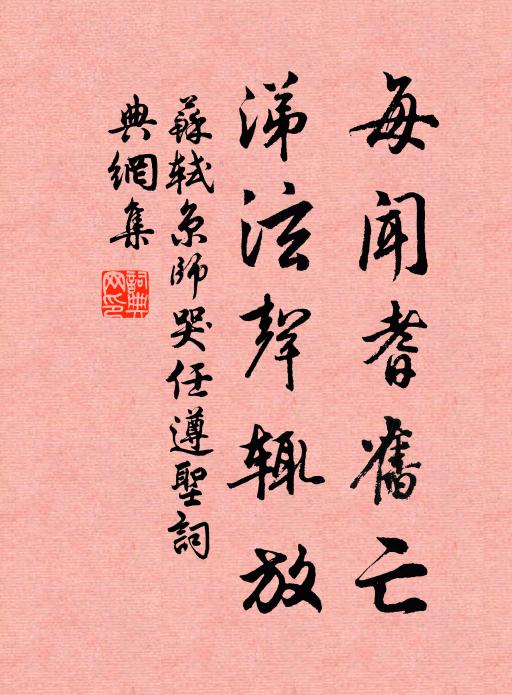 每聞耆舊亡
涕泫聲輒放
蘇軾京師哭任遵聖詞
典網集
詞典網印